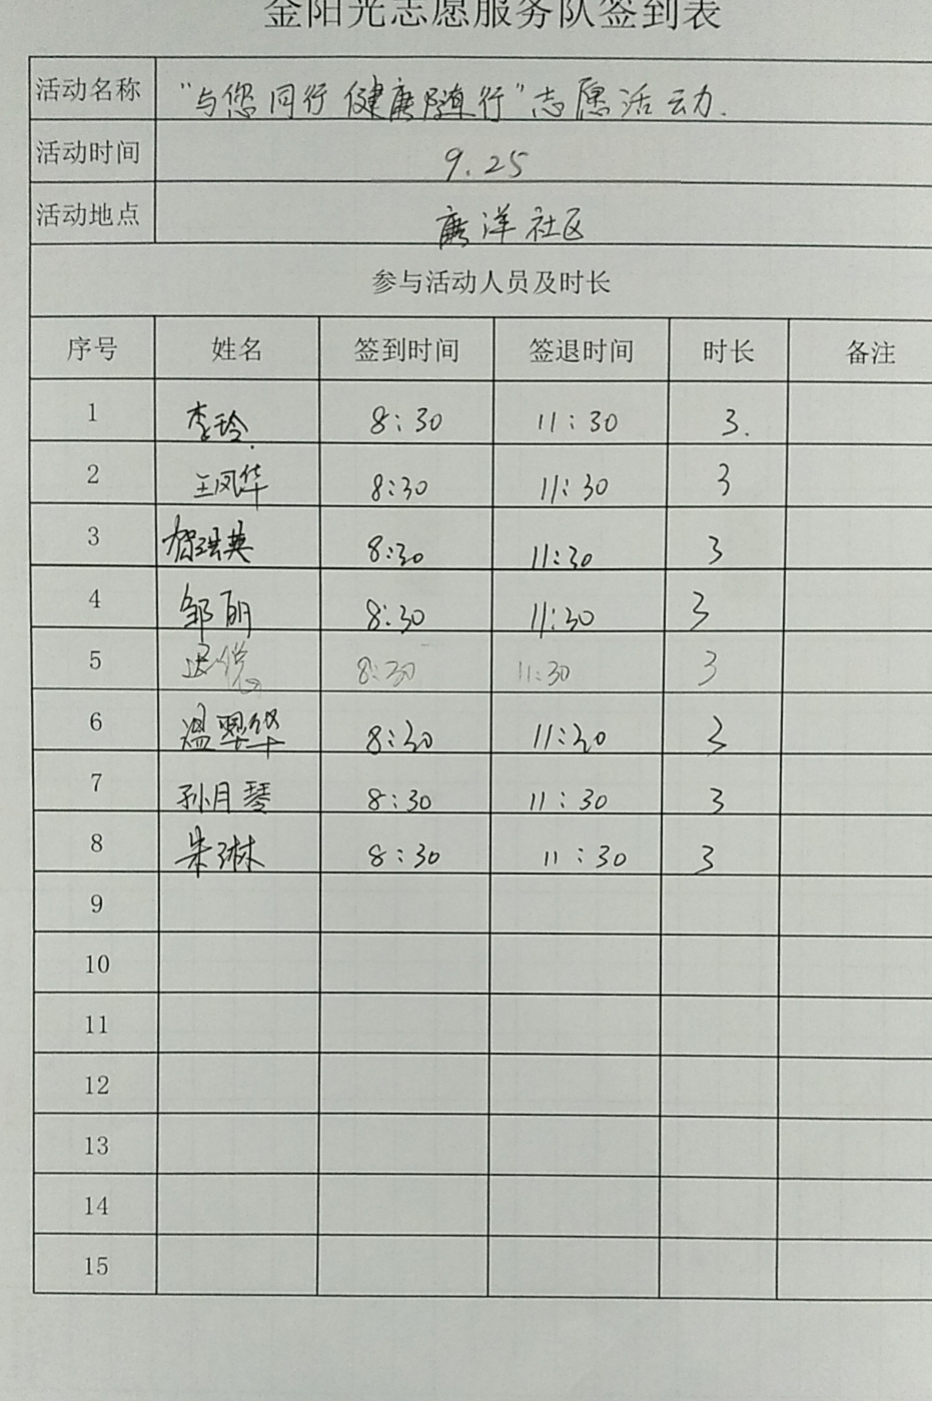 金阳光志愿服务队签到表
活动名称 "与您同行 健康随行"志愿活动.
活动时间 9.25
活动地点 唐洋社区
参与活动人员及时长
序号 姓名 签到时间 签退时间 时长 备注
1 李玲 8:30 11:30 3.
2 王凤华 8:30 11:30 3
3 8:30 11:30 3
4 邹丽 8:30 11:30 3
5 8:30 11:30 3
6 温翠华 8:30 11:30 3
7 孙月琴 8:30 11:30 3
8 朱琳 8:30 11:30 3
9
10
11
12
13
14
15